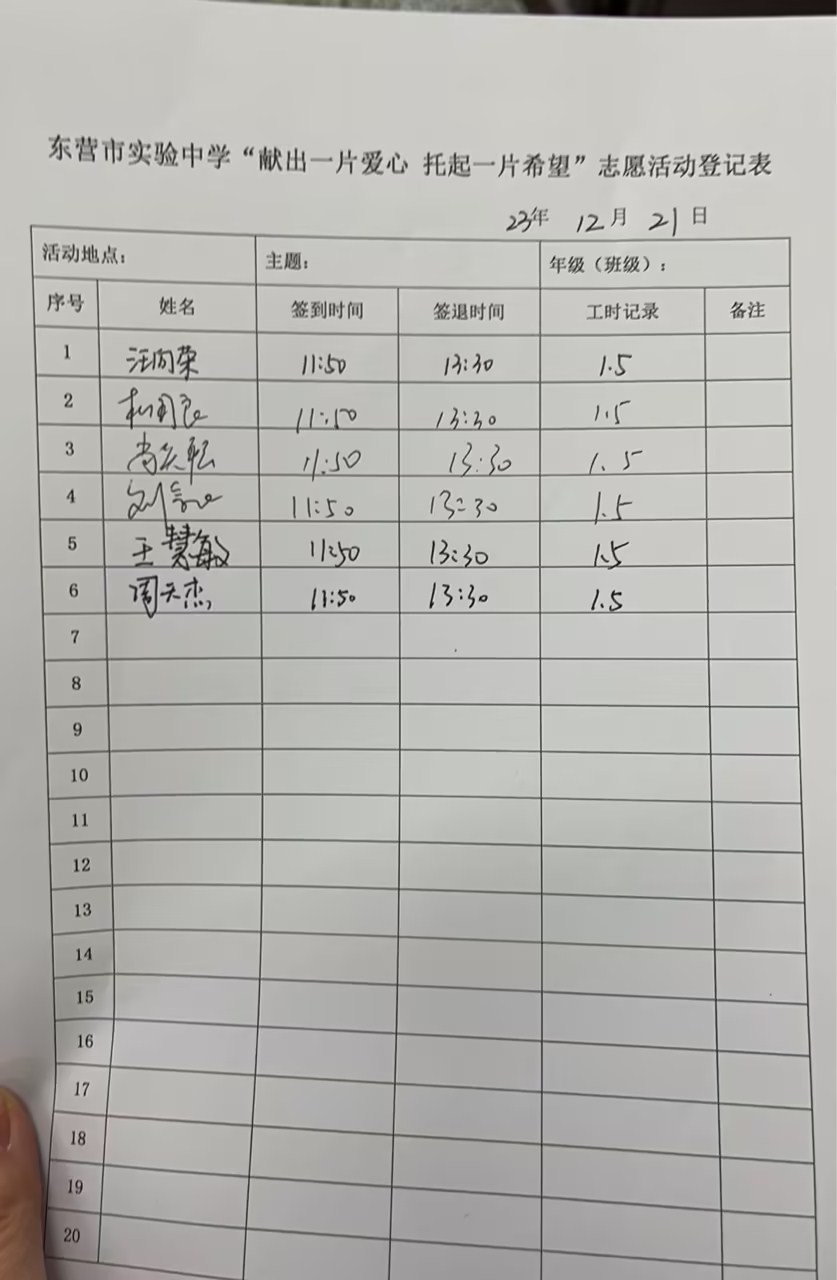 东营市实验中学“献出一片爱心 托起一片希望”志愿活动登记表
23年 12月 21日
活动地点： 主题： 年级（班级）：
序号 姓名 签到时间 签退时间 工时记录 备注
1 汪向荣 11:50 13:30 1.5
2 11:50 13:30 1.5
3 11:50 13:30 1.5
4 11:50 13:30 1.5
5 王慧敏 11:50 13:30 1.5
6 周天杰 11:50 13:30 1.5
7
8
9
10
11
12
13
14
15
16
17
18
19
20